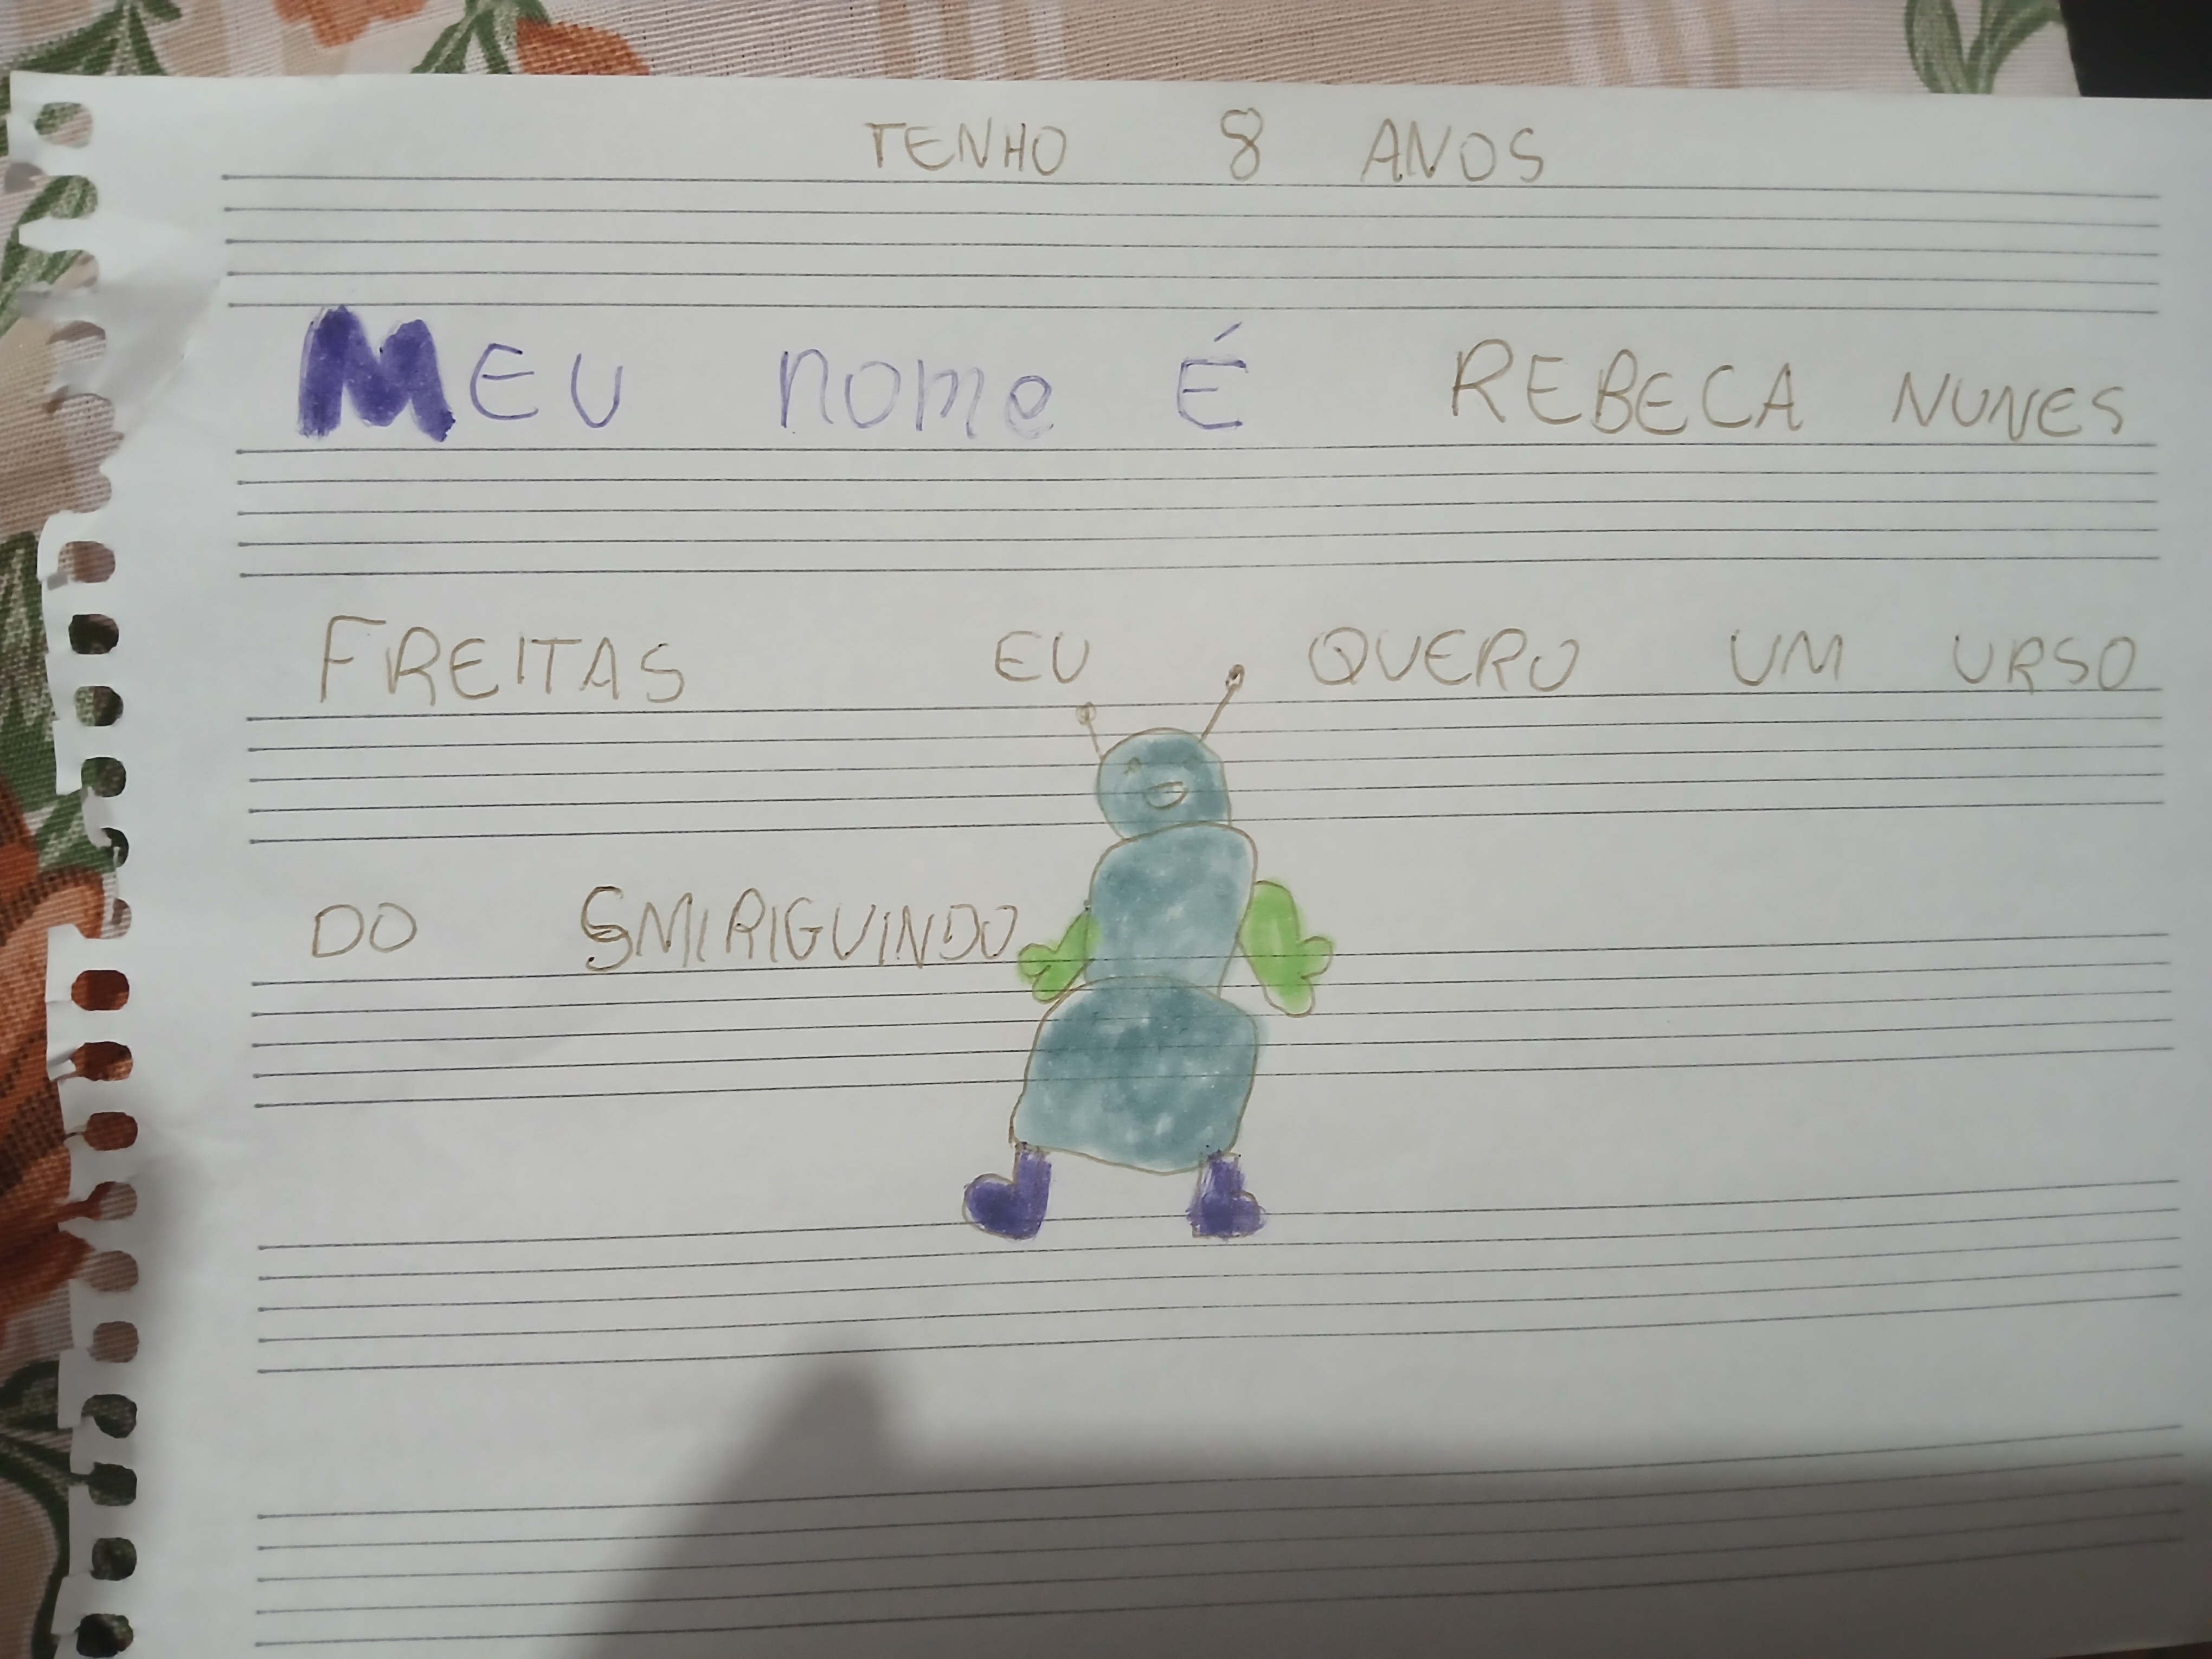 TENHO 8 ANOS
MEU nome É REBECA NUNES
FREITAS EU QUERO UM URSO
DO SMIRIGUINDO